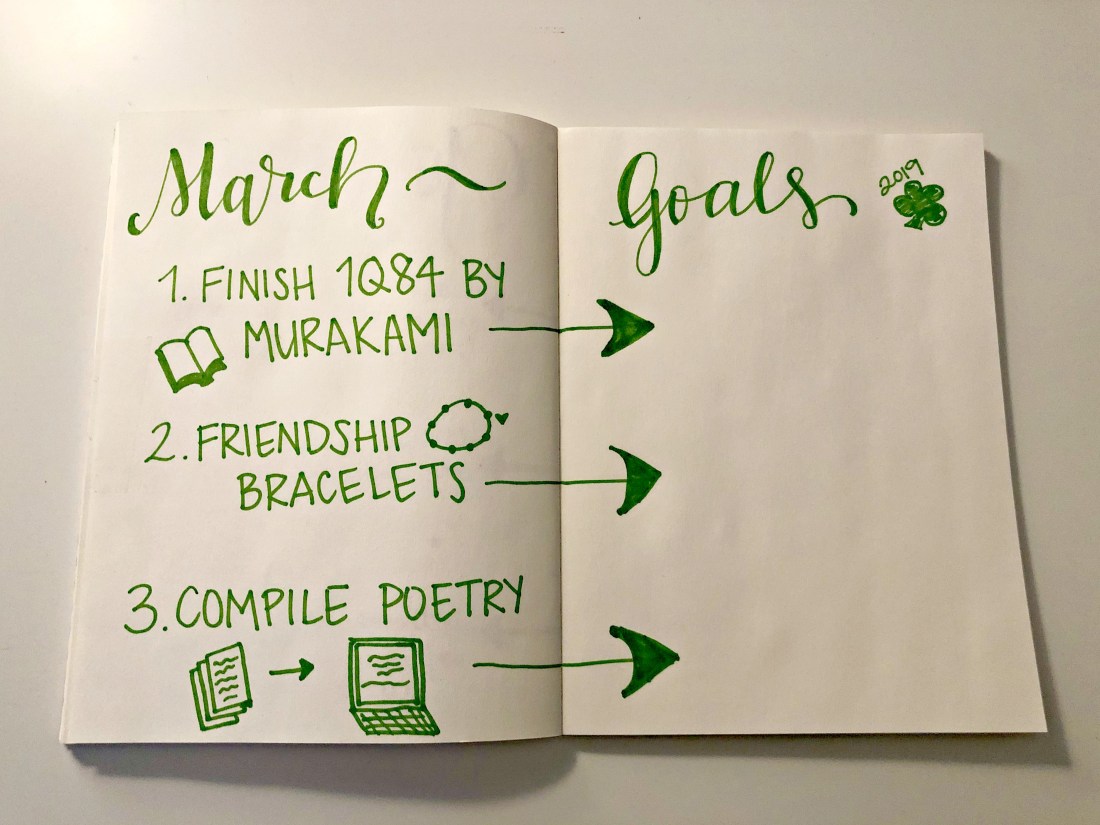 March ~ Goals
2019
1. FINISH 1Q84 BY
MURAKAMI
2. FRIENDSHIP
BRACELETS
3. COMPILE POETRY